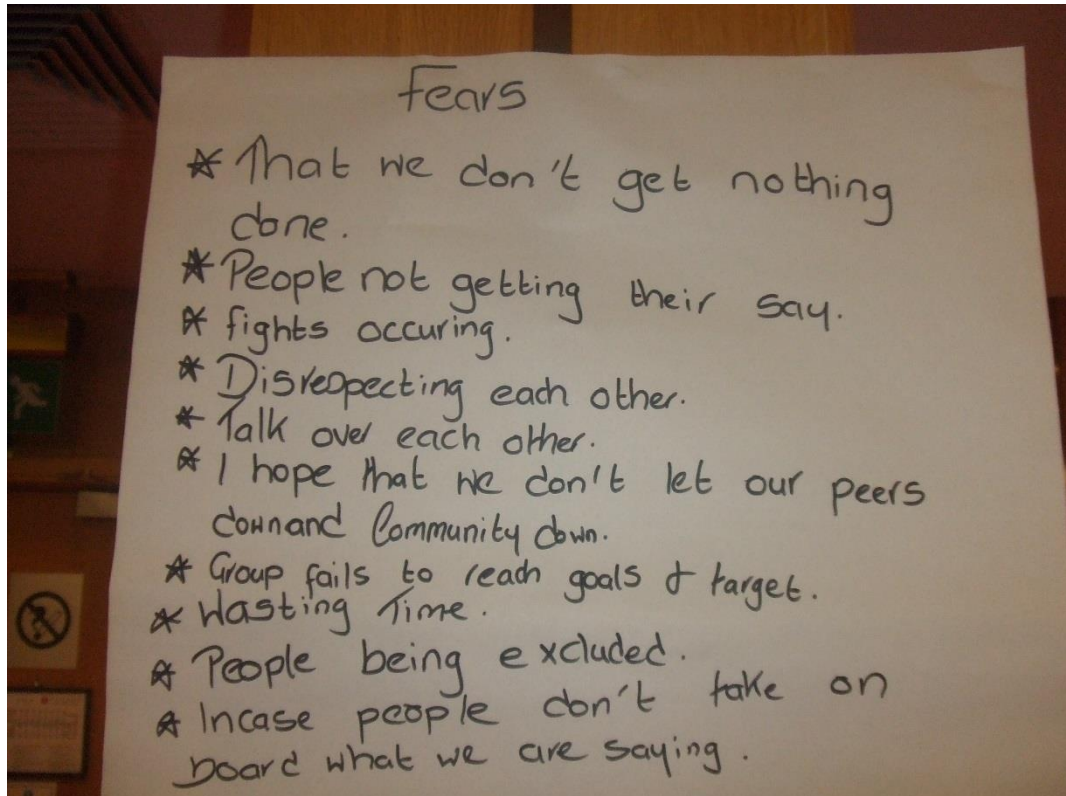 Fears
* That we don't get nothing
done.
* People not getting their say.
* fights occuring.
* Disrespecting each other.
* Talk over each other.
* I hope that we don't let our peers
down and Community down.
* Group fails to reach goals & target.
* Wasting Time.
* People being excluded.
* Incase people don't take on
board what we are saying.